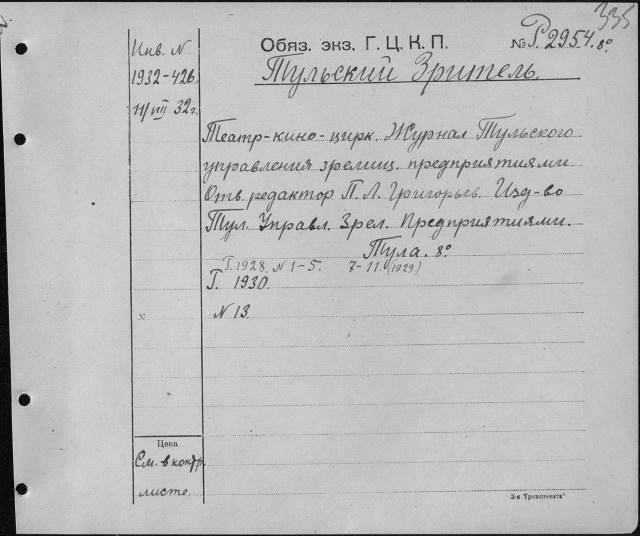 335
Обяз. экз. Г. Ц. К. П.
№ Р 2954. 8°
Тульский Зритель.
Инв. N
1932-426.
11/VIII 32 г.
Театр-кино-цирк. Журнал Тульского
управления зрелищ. предприятиями.
Отв. редактор П. Л. Григорьев. Изд-во
Тул. Управл. Зрел. Предприятиями.
Тула. 8°
Г. 1928. N 1-5. 7-11. (1929)
Г. 1930.
х
N 13.
Цена
См. в контр.
листе.
3-я Транспечати"